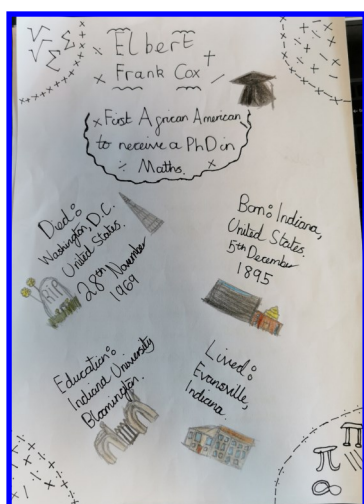 √ Σ
√ Σ
Elbert
Frank Cox
First African American
to receive a PhD in
Maths.
Died:
Washington, D.C.
United States.
28th November
1969
RIP
Born: Indiana,
United States.
5th December
1895
Education:
Indiana University
Bloomington.
Lived:
Evansville,
Indiana.
π
π
∞